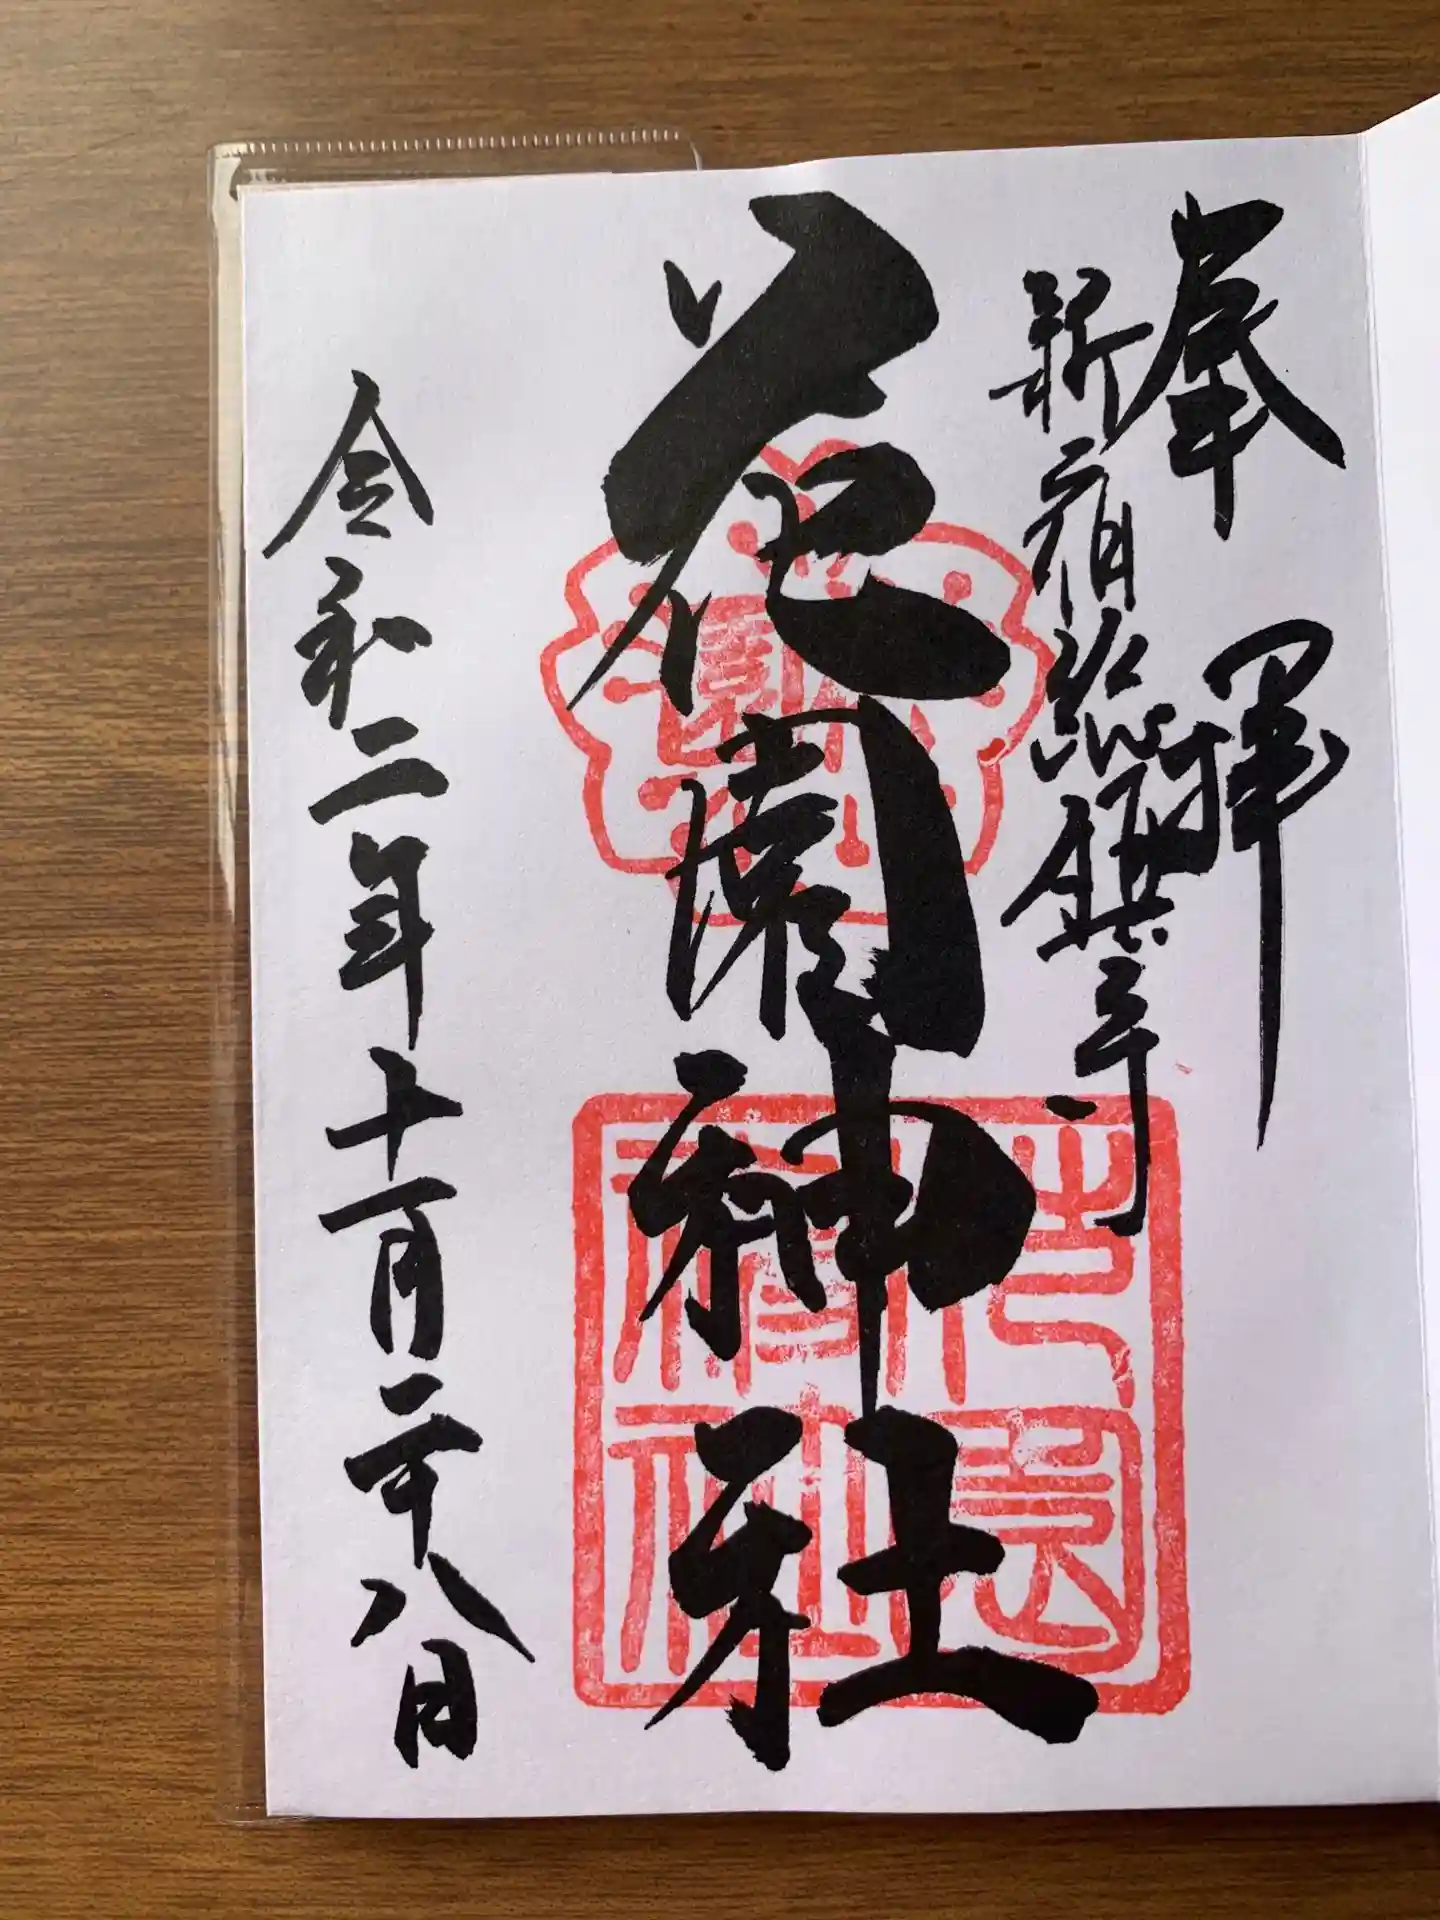 奉拝
新宿総鎮守
花園神社
花園神社
令和二年十一月二十八日